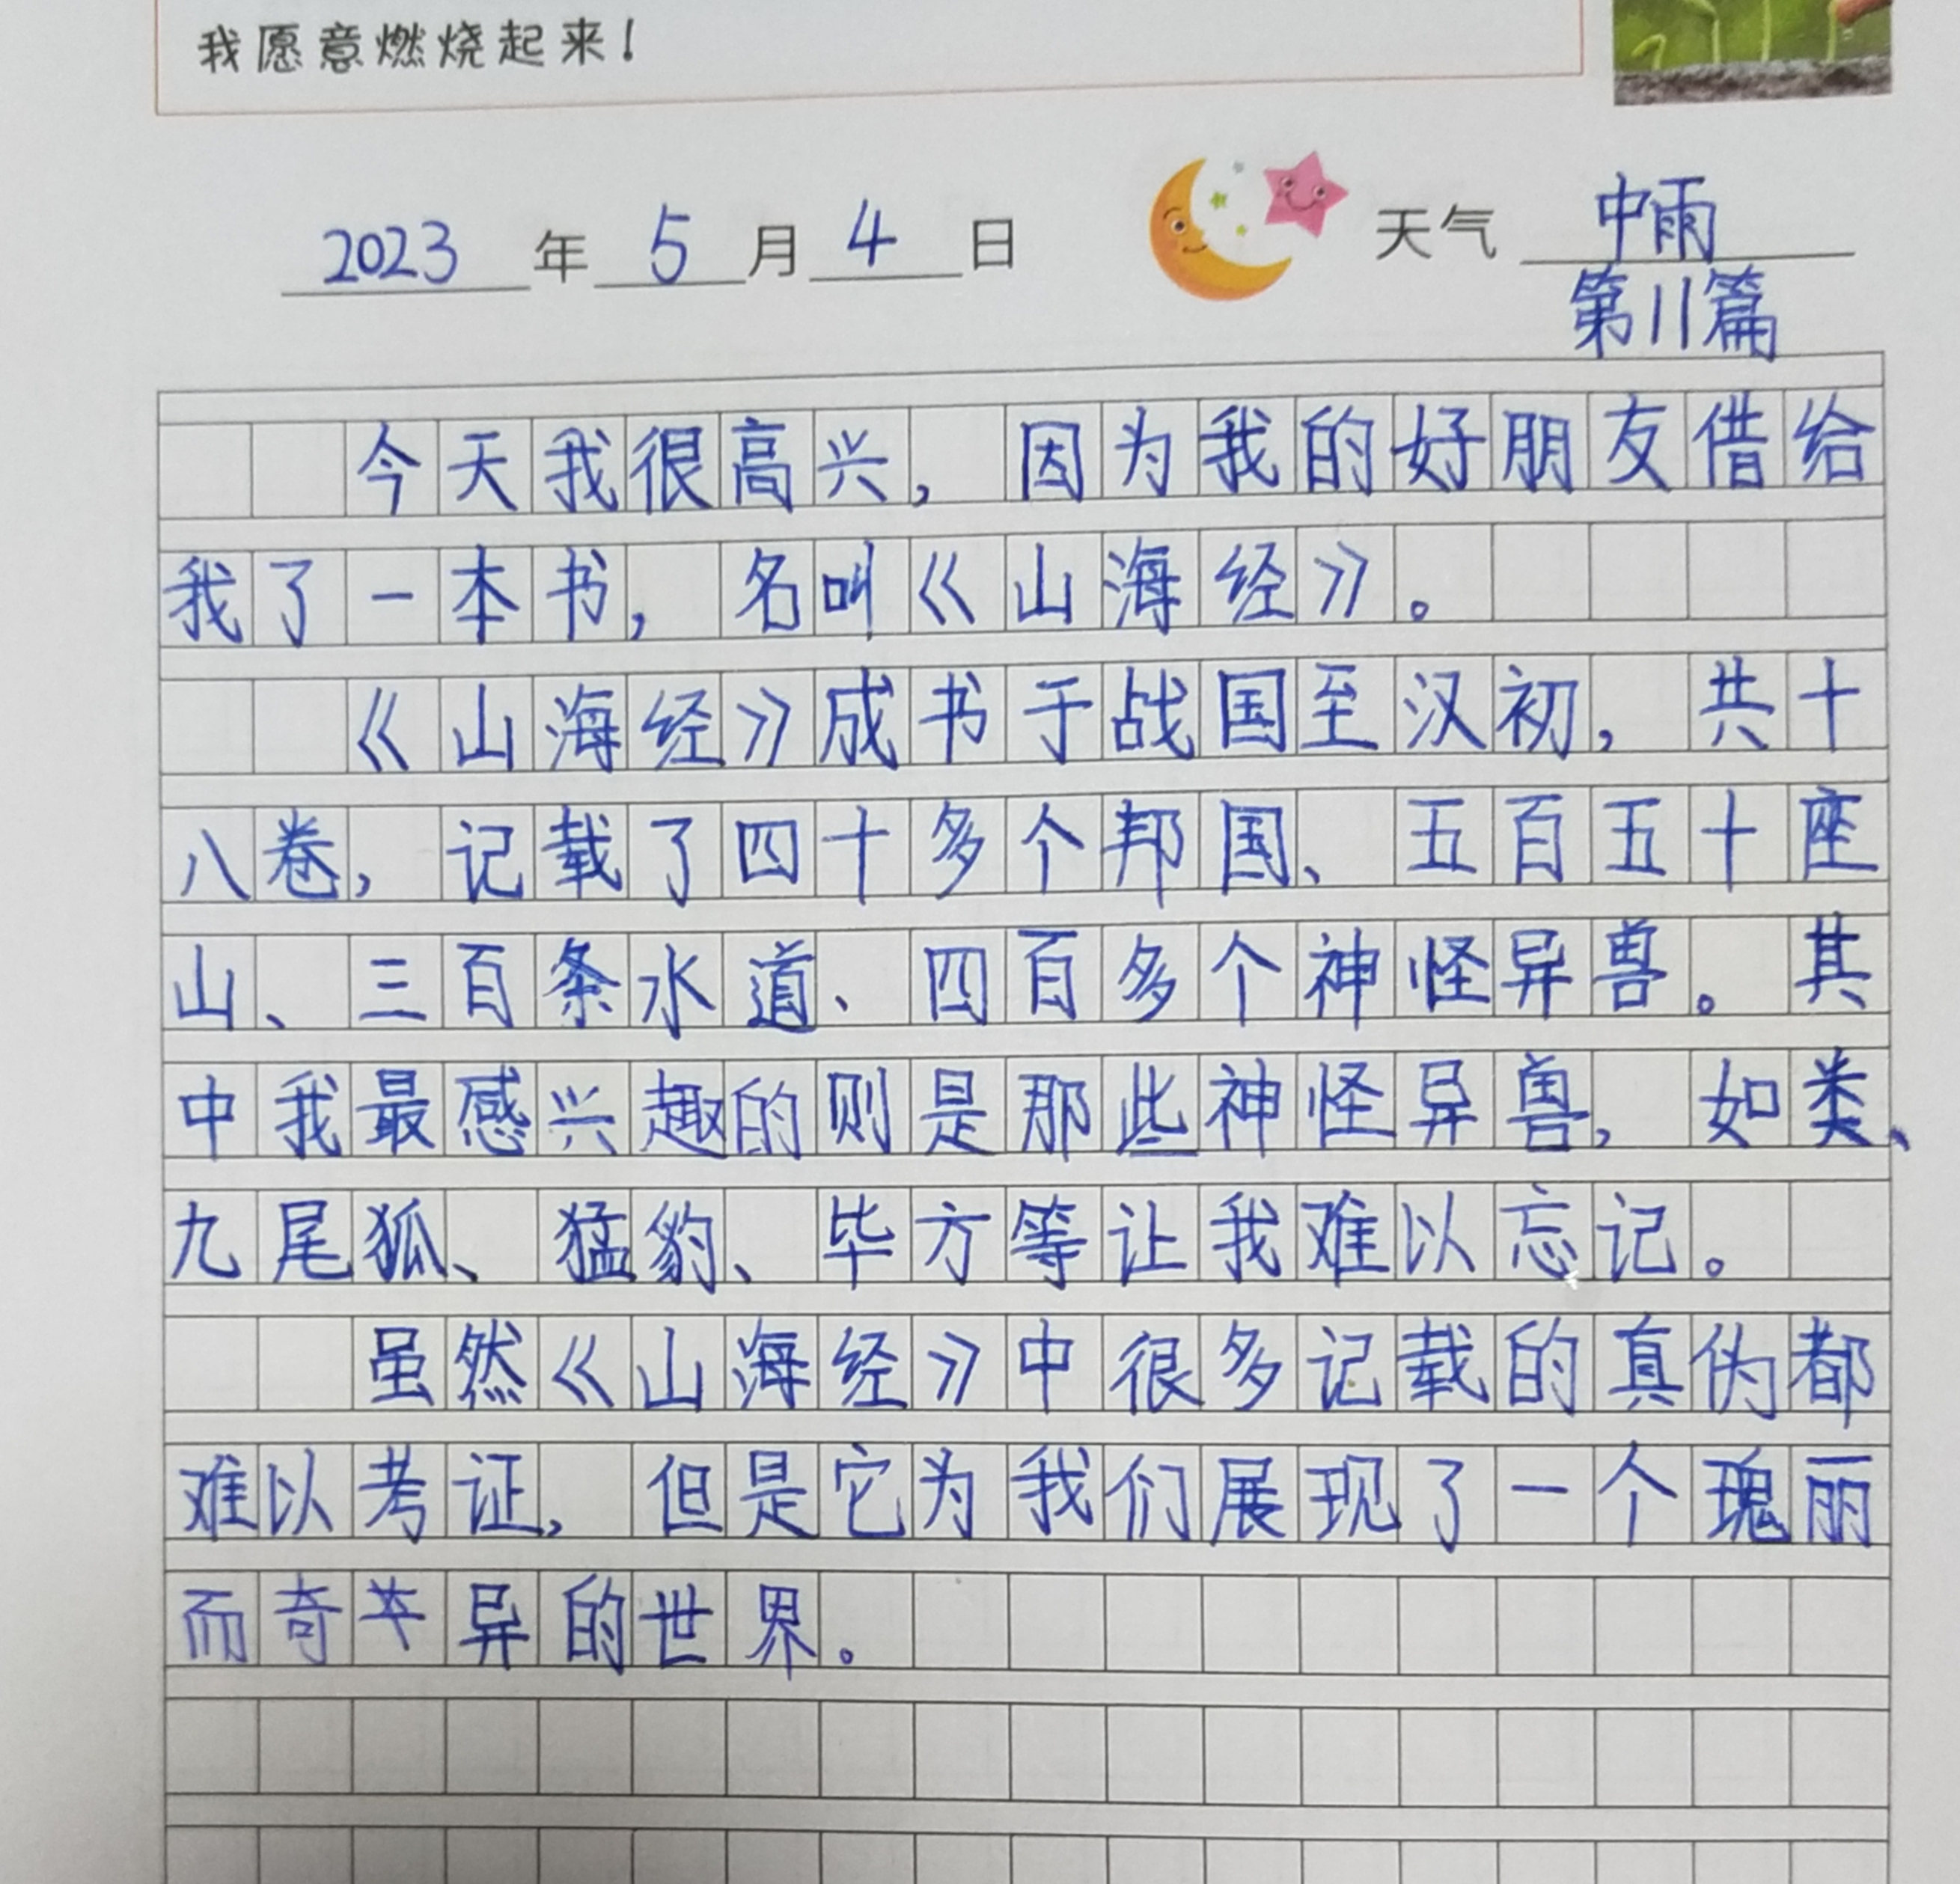 我愿意燃烧起来！
2023年5月4日 天气 中雨
第11篇
今天我很高兴，因为我的好朋友借给
我了一本书，名叫《山海经》。
《山海经》成书于战国至汉初，共十
八卷，记载了四十多个邦国、五百五十座
山、三百条水道、四百多个神怪异兽。其
中我最感兴趣的则是那些神怪异兽，如类、
九尾狐、猛豹、毕方等让我难以忘记。
虽然《山海经》中很多记载的真伪都
难以考证，但是它为我们展现了一个瑰丽
而奇异的世界。